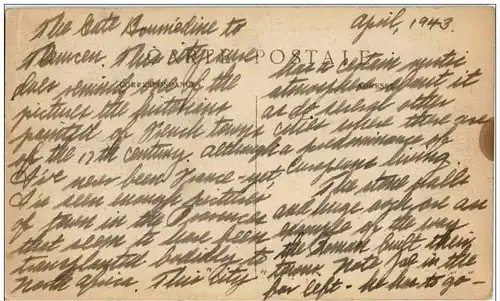 April, 1943.
The Gate Boumedine to
Tlemcen. This city sure
CARTE POSTALE
CORRESPONDANCE
does reminds of the
pictures the
painted of French towns
of the 17th century. although
I've never been France - yet,
I've seen enough pictures
of towns in the Provence
that seem to have been
transplanted bodily to
North Africa. This "City"
has a certain mystic
atmosphere about it
ADRESSE
as do several other
cities where there are
a predominance of
Europeans living
The stone walls
and huge arch are an
example of the way
the Romans built their
towns. Note in the
far left - he has to go -